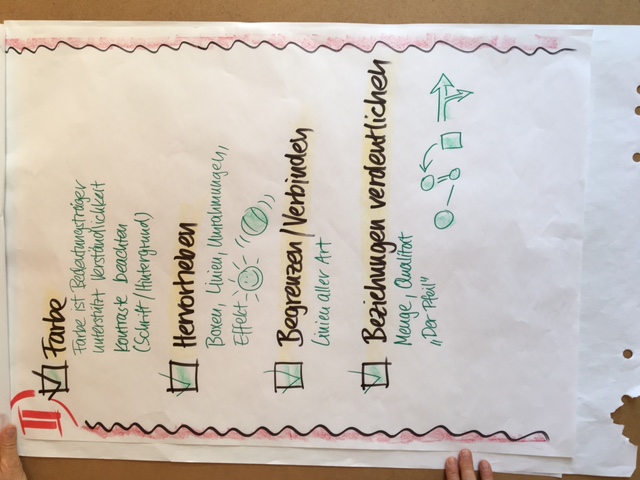 II)
Farbe
Farbe ist Bedeutungsträger
unterstützt Verständlichkeit
Kontraste beachten
(Schrift/Hintergrund)
Hervorheben
Boxen, Linien, Umrahmungen,
Effekt
Begrenzen/Verbinden
Linien aller Art
Beziehungen verdeutlichen
Menge, Qualität
„Der Pfeil"